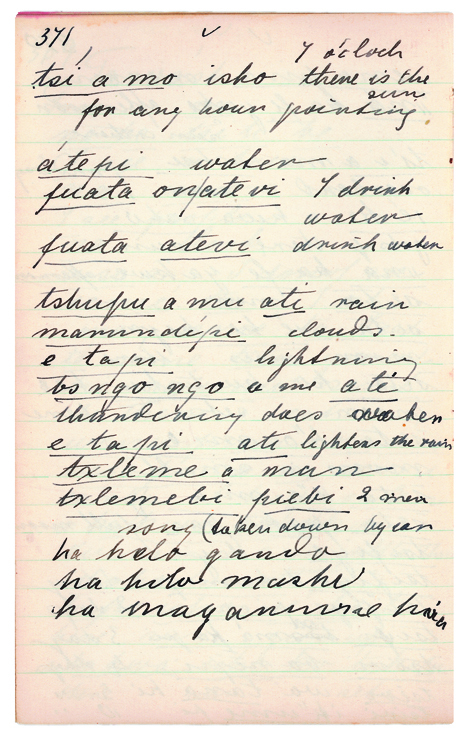 371
7 o'cloch
tsí a mo isho there is the
sun
for any hour pointing
átepi water
fuata onatevi I drink
water
fuata atevi drink water
tshupu a mu ati rain
marundépi clouds
e tapi lightning
ts ngo ngo a me ate
thundering does water
e tapi ati lightens the rain
txleme a man
txlemebi piebi 2 men
song (taken down by ear
ha helo gando
ha hilo mashi
ha